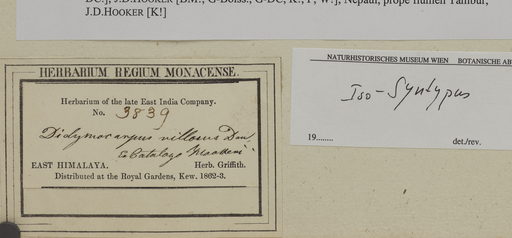 DC.], J.D.HOOKER [BM!, G-Boiss., G-DC, K!, P, W!], Nepaul, prope flumen Tambur,
J.D.HOOKER [K!]
HERBARIUM REGIUM MONACENSE.
Herbarium of the late East India Company.
No. 3839
Didymocarpus villosus Don
EAST HIMALAYA. Herb. Griffith.
Distributed at the Royal Gardens, Kew. 1862-3.
NATURHISTORISCHES MUSEUM WIEN BOTANISCHE AB
Iso-Syntypus
19........ det./rev.